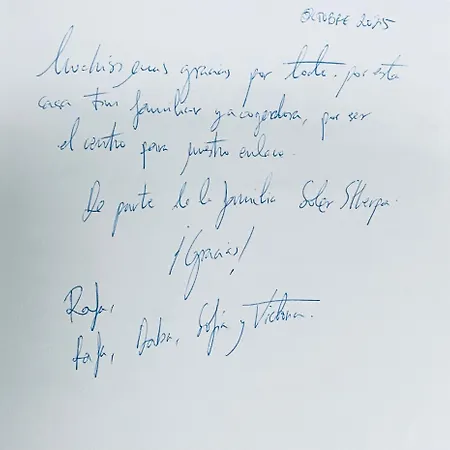 OCTUBRE 2025
Muchissimas gracias por todo. por esta
casa tan familiar y acogedora, por ser
el centro para nuestro enlace.
De parte de la familia Soler Sherpa.
¡Gracias!
Rafa,
Sofia y Victoria.